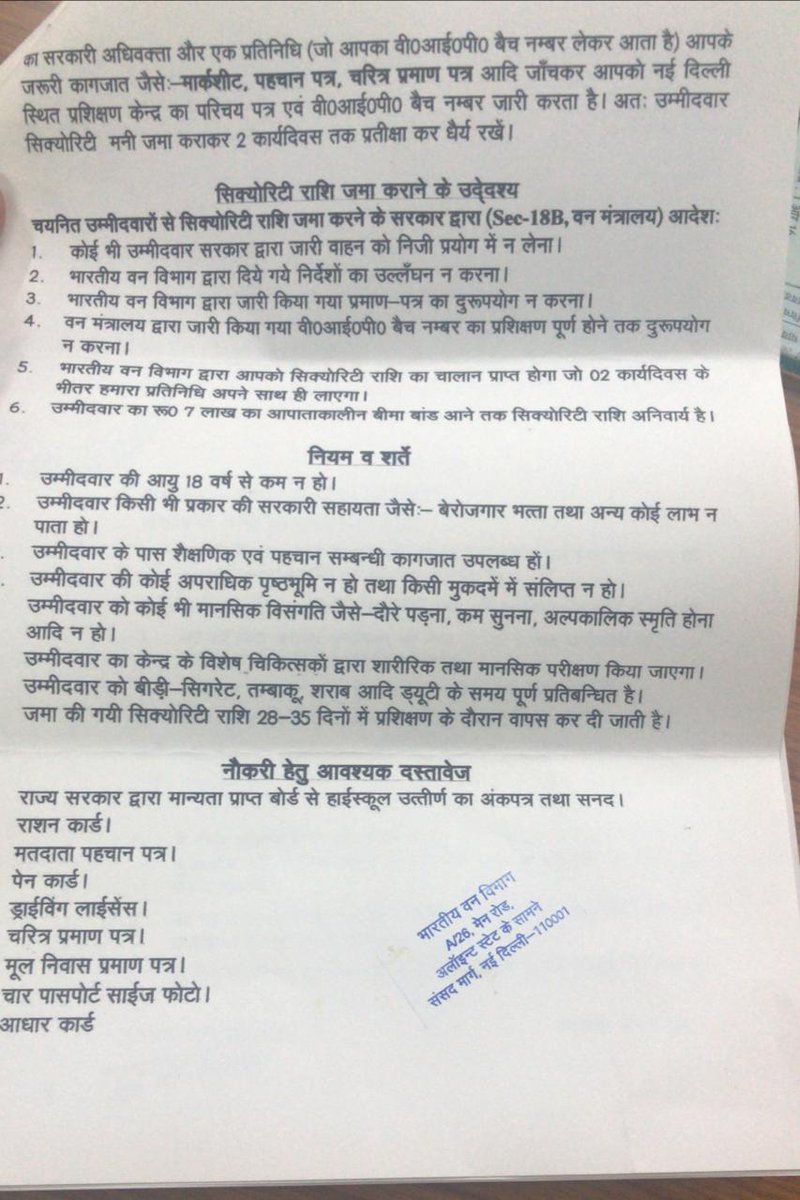 का सरकारी अधिवक्ता और एक प्रतिनिधि (जो आपका वी0आई0पी0 बैच नम्बर लेकर आता है) आपके
जरूरी कागजात जैसे:–मार्कशीट, पहचान पत्र, चरित्र प्रमाण पत्र आदि जाँचकर आपको नई दिल्ली
स्थित प्रशिक्षण केन्द्र का परिचय पत्र एवं वी0आई0पी0 बैच नम्बर जारी करता है। अतः उम्मीदवार
सिक्योरिटी मनी जमा कराकर 2 कार्यदिवस तक प्रतीक्षा कर धैर्य रखें।
सिक्योरिटी राशि जमा कराने के उद्देश्य
चयनित उम्मीदवारों से सिक्योरिटी राशि जमा करने के सरकार द्वारा (Sec-18B, वन मंत्रालय) आदेशः
1. कोई भी उम्मीदवार सरकार द्वारा जारी वाहन को निजी प्रयोग में न लेना।
2. भारतीय वन विभाग द्वारा दिये गये निर्देशों का उल्लँघन न करना।
3. भारतीय वन विभाग द्वारा जारी किया गया प्रमाण–पत्र का दुरूपयोग न करना।
4. वन मंत्रालय द्वारा जारी किया गया वी0आई0पी0 बैच नम्बर का प्रशिक्षण पूर्ण होने तक दुरूपयोग
न करना।
5. भारतीय वन विभाग द्वारा आपको सिक्योरिटी राशि का चालान प्राप्त होगा जो 02 कार्यदिवस के
भीतर हमारा प्रतिनिधि अपने साथ ही लाएगा।
6. उम्मीदवार का रू0 7 लाख का आपाताकालीन बीमा बांड आने तक सिक्योरिटी राशि अनिवार्य है।
नियम व शर्ते
1. उम्मीदवार की आयु 18 वर्ष से कम न हो।
2. उम्मीदवार किसी भी प्रकार की सरकारी सहायता जैसेः– बेरोजगार भत्ता तथा अन्य कोई लाभ न
पाता हो।
. उम्मीदवार के पास शैक्षणिक एवं पहचान सम्बन्धी कागजात उपलब्ध हों।
. उम्मीदवार की कोई अपराधिक पृष्ठभूमि न हो तथा किसी मुकदमें में संलिप्त न हो।
उम्मीदवार को कोई भी मानसिक विसंगति जैसे–दौरे पड़ना, कम सुनना, अल्पकालिक स्मृति होना
आदि न हो।
उम्मीदवार का केन्द्र के विशेष चिकित्सकों द्वारा शारीरिक तथा मानसिक परीक्षण किया जाएगा।
उम्मीदवार को बीड़ी–सिगरेट, तम्बाकू, शराब आदि ड्यूटी के समय पूर्ण प्रतिबन्धित है।
जमा की गयी सिक्योरिटी राशि 28–35 दिनों में प्रशिक्षण के दौरान वापस कर दी जाती है।
नौकरी हेतु आवश्यक दस्तावेज
राज्य सरकार द्वारा मान्यता प्राप्त बोर्ड से हाईस्कूल उत्तीर्ण का अंकपत्र तथा सनद।
राशन कार्ड।
मतदाता पहचान पत्र।
पेन कार्ड।
ड्राईविंग लाईसेंस।
चरित्र प्रमाण पत्र।
मूल निवास प्रमाण पत्र।
चार पासपोर्ट साईज फोटो।
आधार कार्ड
भारतीय वन विभाग
A/26, मेन रोड,
अलॉइन्ट स्टेट के सामने
संसद मार्ग, नई दिल्ली–110001